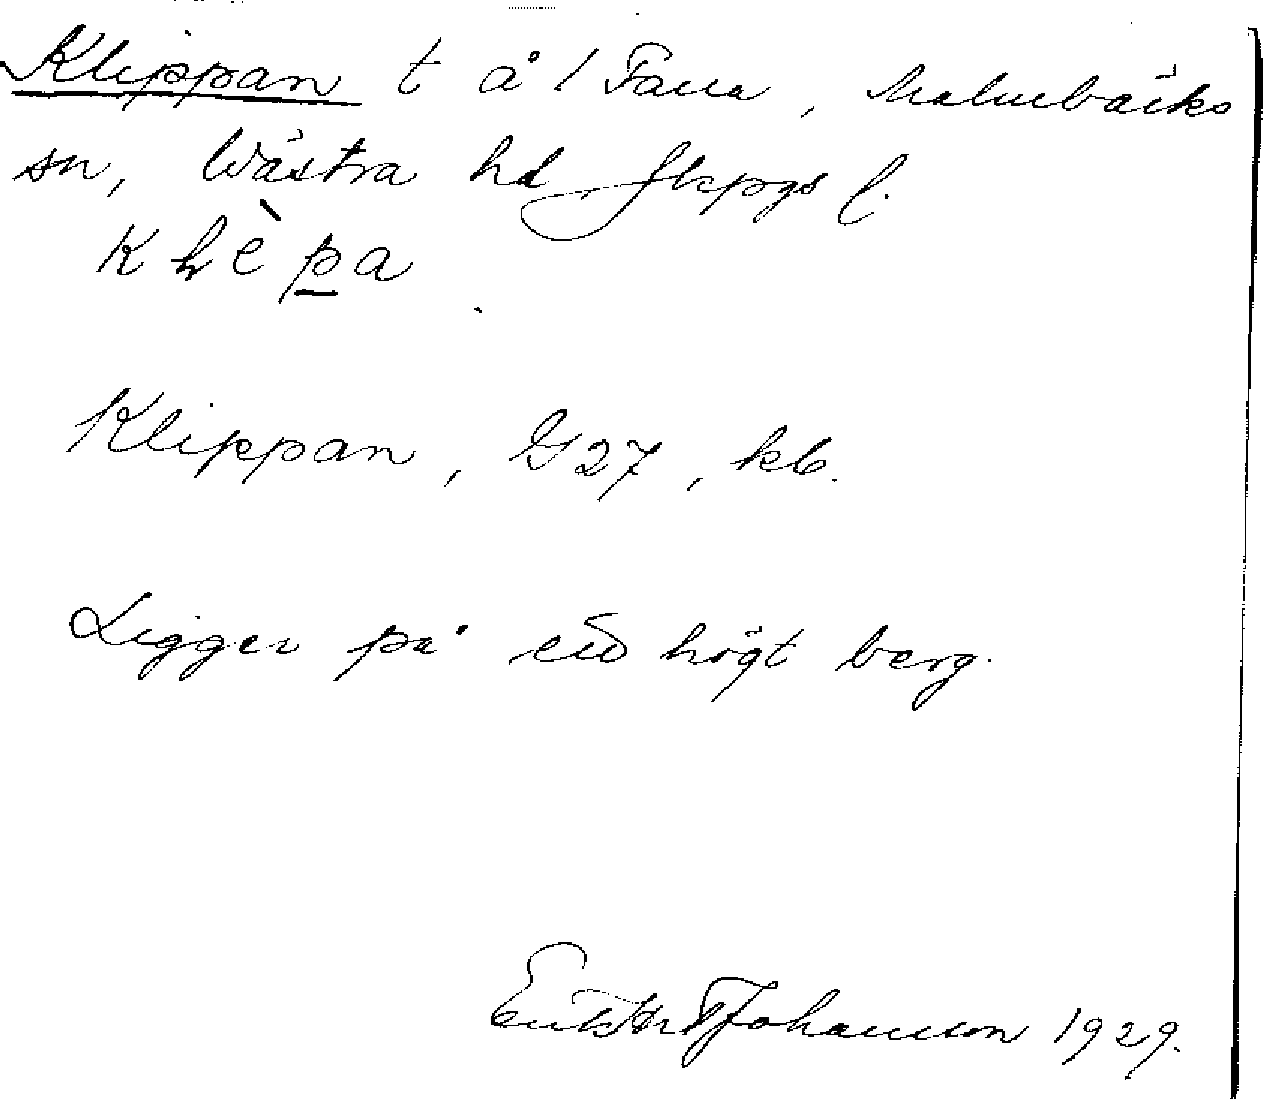 Klippan t å 1 Fana, Malmbäcks
sn, Västra hd Jkpgs l.
Klippan, G 27, kb.
Ligger på ett högt berg.
Johansson 1929.